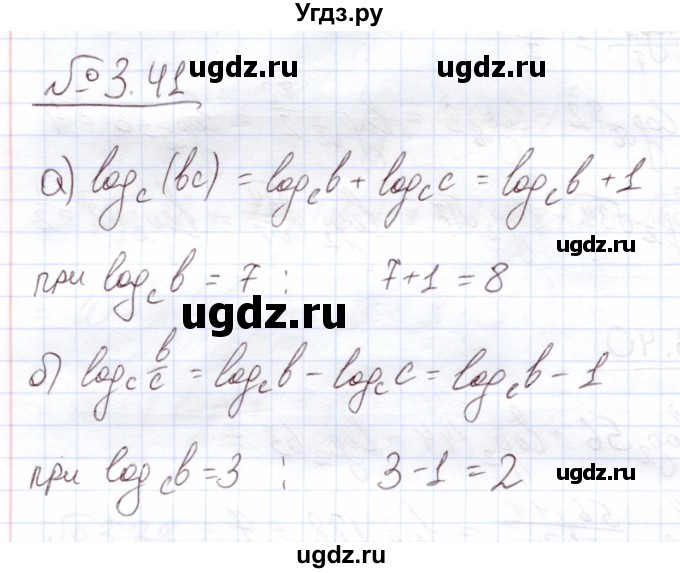 Угдз.ру
№ 3.41
ugdz.ru ugdz.ru
а) log_c (bc) = log_c b + log_c c = log_c b + 1
ugdz.ru
при log_c b = 7 : 7+1 = 8
ugdz.ru
б) log_c b/c = log_c b − log_c c = log_c b − 1
при log_c b = 3 : 3−1 = 2
ugdz.ru
ugdz.ru